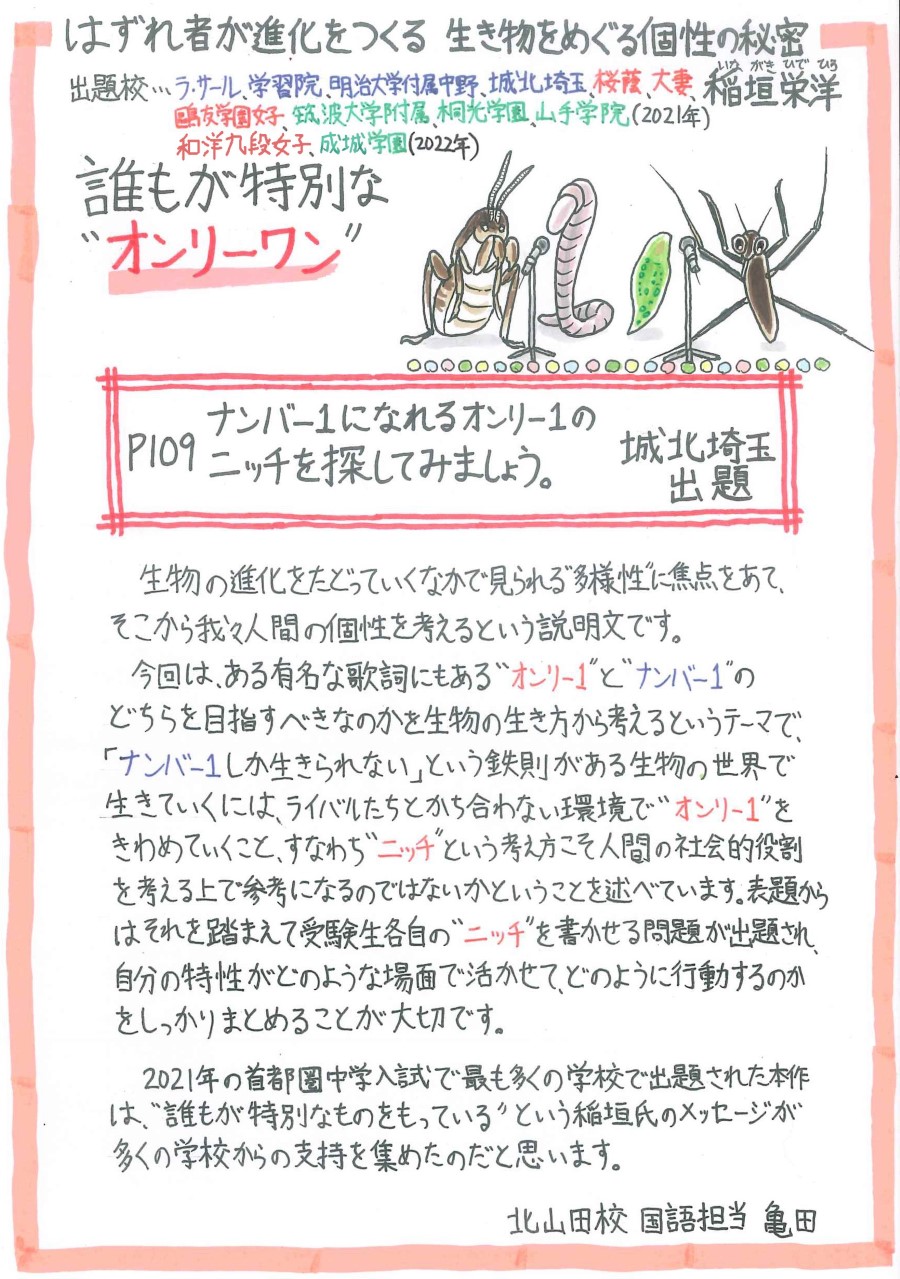 はずれ者が進化をつくる 生き物をめぐる個性の秘密
出題校…ラ・サール、学習院、明治大学付属中野、城北埼玉、桜蔭、大妻、
いながきひでひろ
稲垣栄洋
鷗友学園女子、筑波大学附属、桐光学園、山手学院(2021年)
和洋九段女子、成城学園(2022年)
誰もが特別な
“オンリーワン”
P109
ナンバー1になれるオンリー1の
ニッチを探してみましょう。
城北埼玉
出題
生物の進化をたどっていくなかで見られる“多様性”に焦点をあて、
そこから我々人間の個性を考えるという説明文です。
今回は、ある有名な歌詞にもある“オンリー1”と“ナンバー1”の
どちらを目指すべきなのかを生物の生き方から考えるというテーマで、
「ナンバー1しか生きられない」という鉄則がある生物の世界で
生きていくには、ライバルたちとかち合わない環境で“オンリー1”を
きわめていくこと、すなわち“ニッチ”という考え方こそ人間の社会的役割
を考える上で参考になるのではないかということを述べています。表題から
はそれを踏まえて受験生各自の“ニッチ”を書かせる問題が出題され、
自分の特性がどのような場面で活かせて、どのように行動するのか
をしっかりまとめることが大切です。
2021年の首都圏中学入試で最も多くの学校で出題された本作
は、“誰もが特別なものをもっている”という稲垣氏のメッセージが
多くの学校からの支持を集めたのだと思います。
北山田校 国語担当 亀田